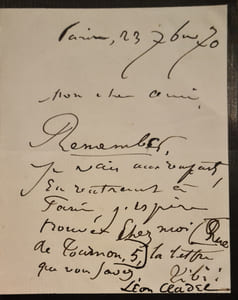 Paris, 23 7bre 70
Mon cher ami,
Remember,
Je vais aux
En rentrant à
Paris, j'espère
trouver chez moi, Rue
de Tournon, 5, la lettre
que vous savez.
Léon Cladel